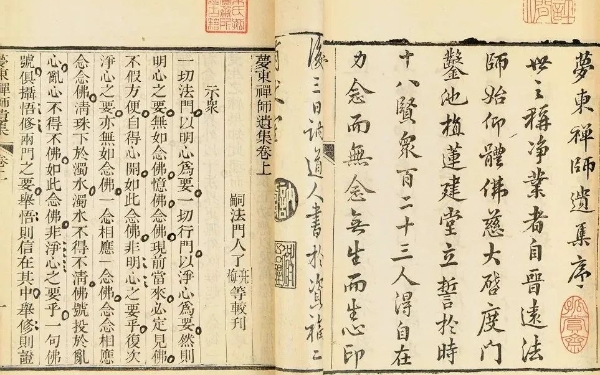 夢東禪師遺集序
世之稱净業者自晉遠法
師始仰體佛慈大啓度門
鑿池植蓮建堂立誓於時
十八賢衆百二十三人得自在
力念而無念無生而生心印
後三日訥道人書於資福二
夢東禪師遺集卷上
嗣法門人了亮了梅等較刊
示衆
一切法門以明心爲要一切行門以淨心爲要然則
明心之要無如念佛憶佛念佛現前當來必定見佛
不假方便自得心開如此念佛非明心之要乎復次
淨心之要亦無如念佛一念相應一念佛念念相應
念念佛清珠下於濁水濁水不得不清佛號投於亂
心亂心不得不佛如此念佛非淨心之要乎一句佛
號俱攝悟修兩門之要舉悟則信在其中舉修則證
夢東禪師遺集
卷上
一